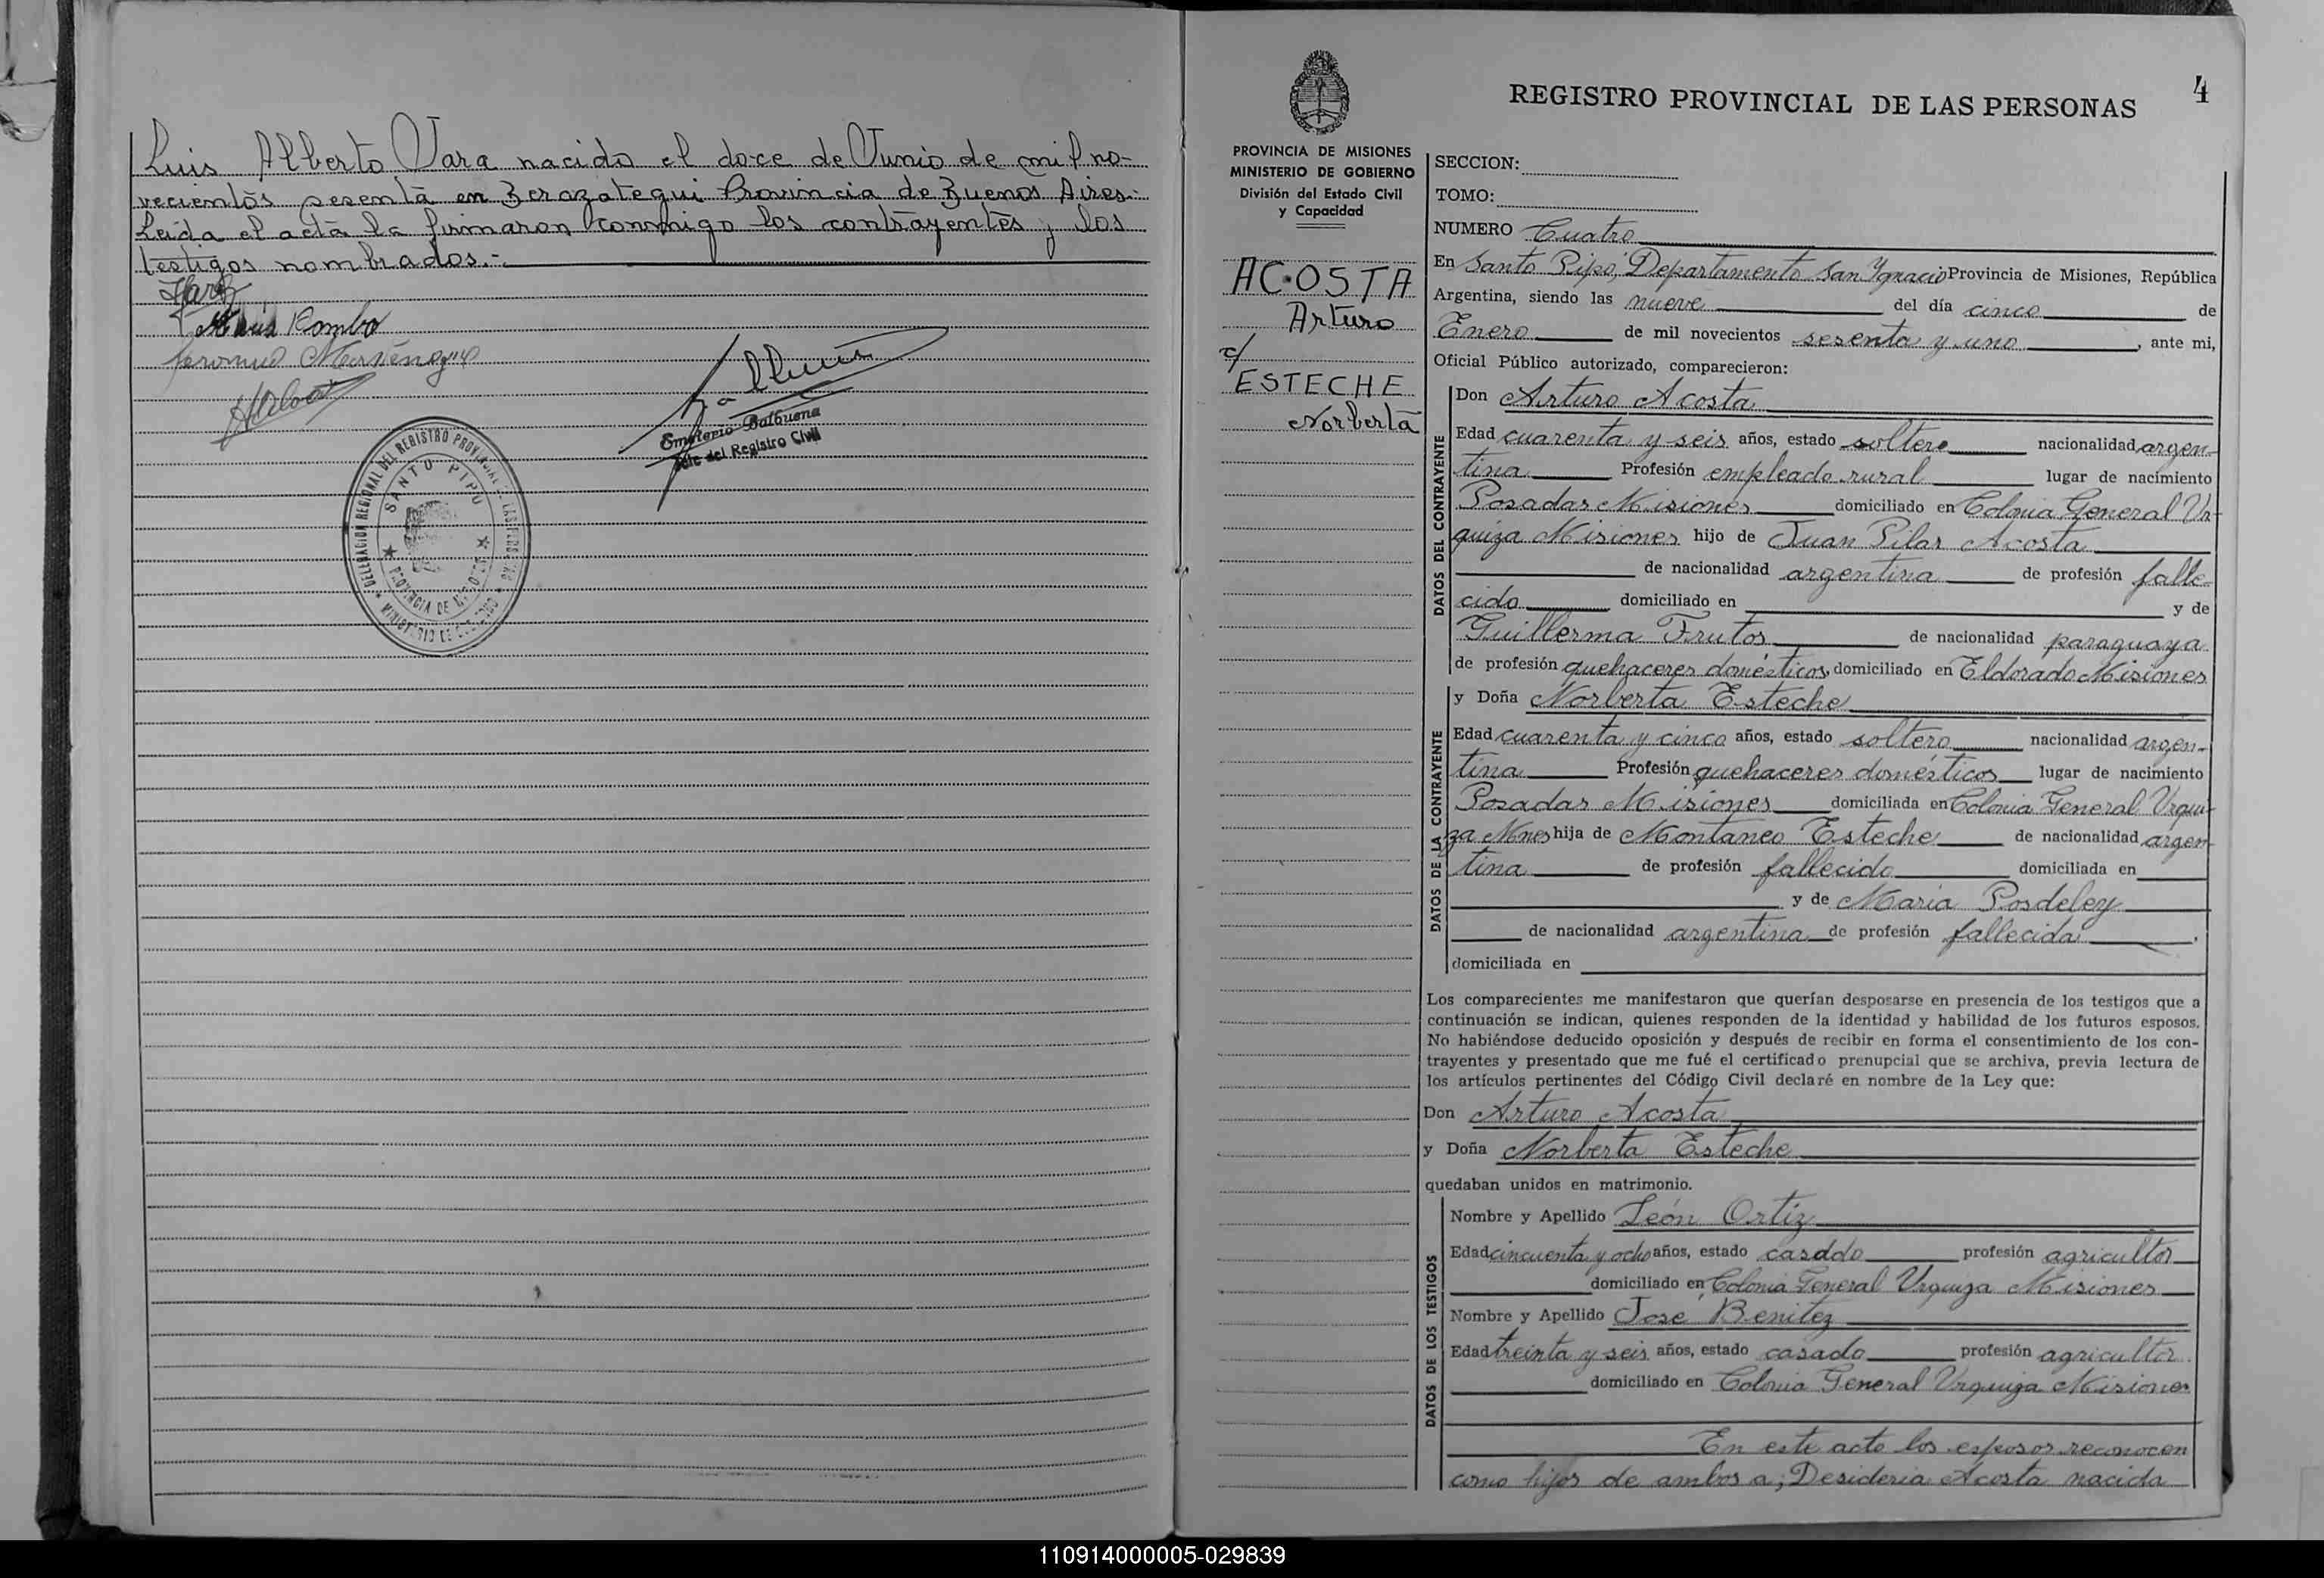 Luis Alberto Jara nacido el doce de Junio de mil no-
vecientos sesenta en Berazategui Provincia de Buenos Aires.-
Leida el acta la firmaron conmigo los contrayentes y los
testigos nombrados.-
Jara
Rombo
Martinez
Emeterio Balbuena
Jefe del Registro Civil
DELEGACION REGIONAL DEL REGISTRO PROVINCIAL DE LAS PERSONAS
SANTO PIPO
PROVINCIA DE MISIONES
MINISTERIO DE GOBIERNO
4
REGISTRO PROVINCIAL DE LAS PERSONAS
PROVINCIA DE MISIONES
MINISTERIO DE GOBIERNO
División del Estado Civil
y Capacidad
ACOSTA
Arturo
c/
ESTECHE
Norberta
SECCION:
TOMO:
NUMERO Cuatro
En Santo Pipo, Departamento San Ygnacio Provincia de Misiones, República
Argentina, siendo las nueve del día cinco de
Enero de mil novecientos sesenta y uno, ante mi,
Oficial Público autorizado, comparecieron:
DATOS DEL CONTRAYENTE
Don Arturo Acosta
Edad cuarenta y seis años, estado soltero nacionalidad argen-
tina Profesión empleado rural lugar de nacimiento
Posadas Misiones domiciliado en Colonia General Ur-
quiza Misiones hijo de Juan Pilar Acosta
de nacionalidad argentina de profesión falle-
cido domiciliado en y de
Guillerma Frutos de nacionalidad paraguaya
de profesión quehaceres domésticos, domiciliado en Eldorado Misiones
DATOS DE LA CONTRAYENTE
y Doña Norberta Esteche
Edad cuarenta y cinco años, estado soltera nacionalidad argen-
tina Profesión quehaceres domésticos lugar de nacimiento
Posadas Misiones domiciliada en Colonia General Urqui-
za Mnes hija de Montaneo Esteche de nacionalidad argen-
tina de profesión fallecido domiciliada en
y de Maria Posdeley
de nacionalidad argentina de profesión fallecida,
domiciliada en
Los comparecientes me manifestaron que querían desposarse en presencia de los testigos que a
continuación se indican, quienes responden de la identidad y habilidad de los futuros esposos.
No habiéndose deducido oposición y después de recibir en forma el consentimiento de los con-
trayentes y presentado que me fué el certificado prenupcial que se archiva, previa lectura de
los artículos pertinentes del Código Civil declaré en nombre de la Ley que:
Don Arturo Acosta
y Doña Norberta Esteche
quedaban unidos en matrimonio.
DATOS DE LOS TESTIGOS
Nombre y Apellido León Ortiz
Edad cincuenta y ocho años, estado casado profesión agricultor
domiciliado en Colonia General Urquiza Misiones
Nombre y Apellido José Benitez
Edad treinta y seis años, estado casado profesión agricultor
domiciliado en Colonia General Urquiza Misiones
En este acto los esposos reconocen
como hijos de ambos a; Desideria Acosta nacida
110914000005-029839